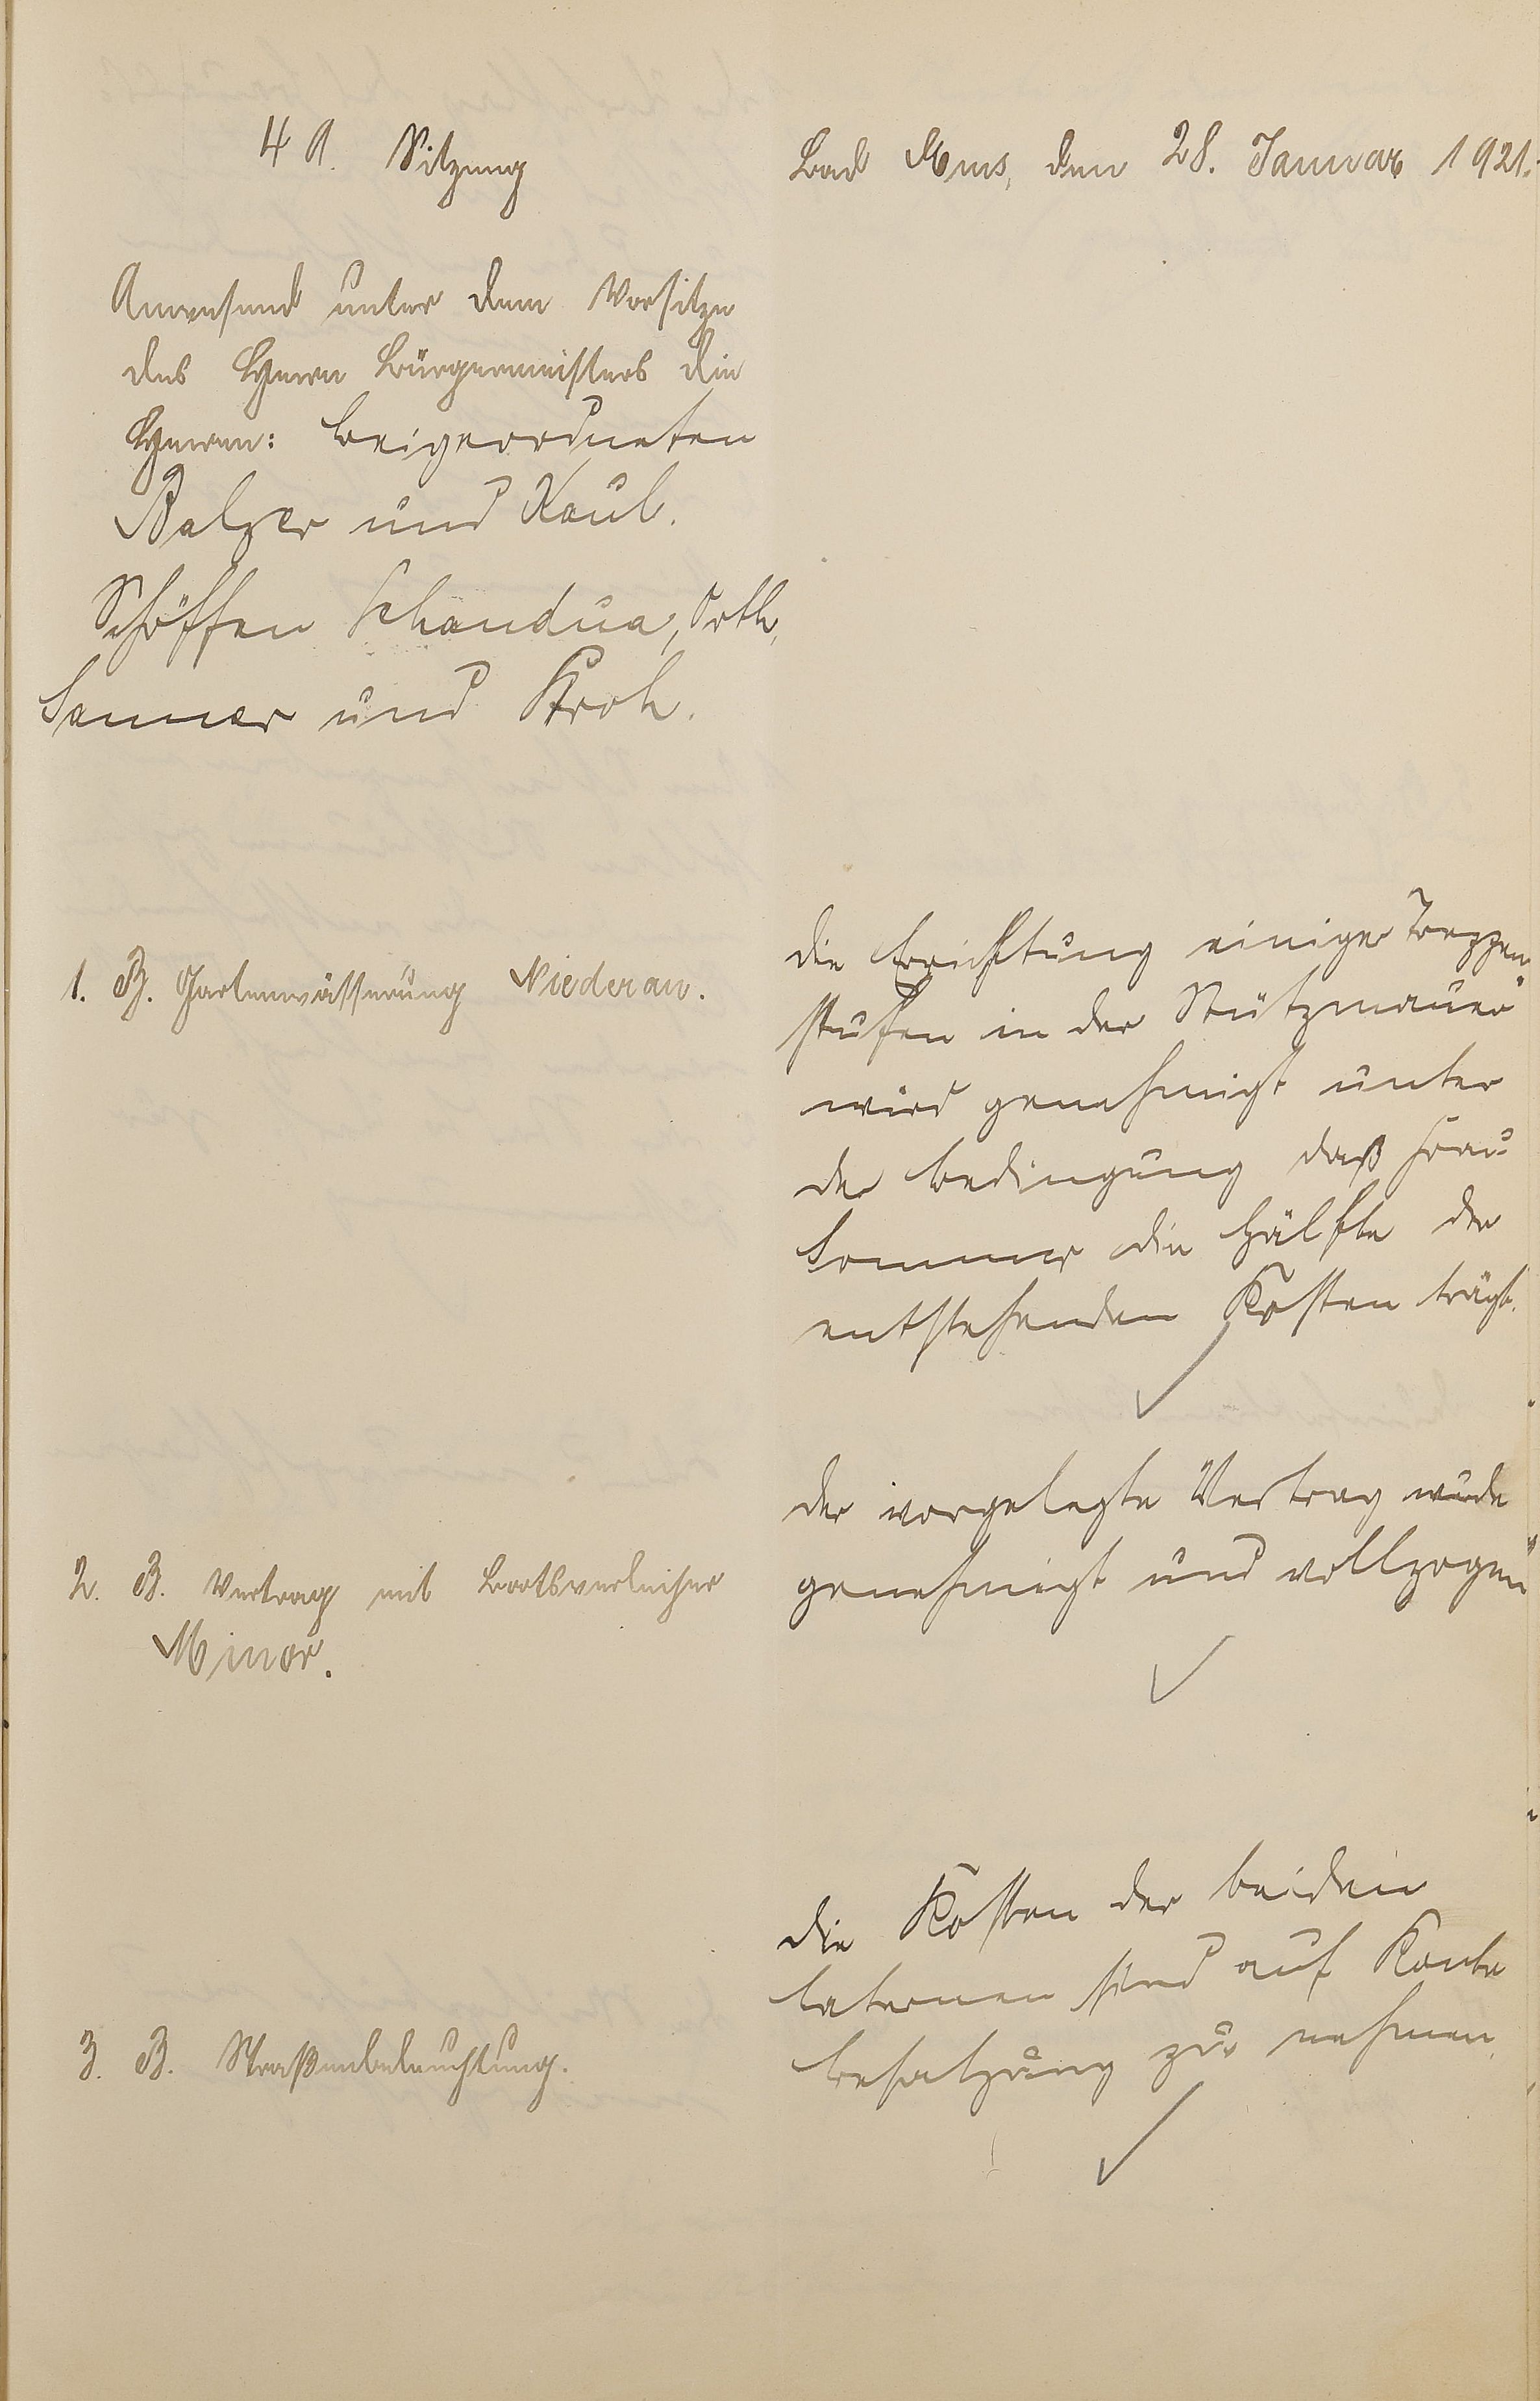 49. Sitzung
Bad Ems, den 28. Januar 1921.
Anwesend unter dem Vorsitze
des Herrn Bürgermeisters die
Herren: Beigeordneten
Balzer und Kaul.
Schöffen Schandua, Orth,
Sommer und Kroh.
1. B. Gartenwässerung Niederau.
die Errichtung einiger Treppen
stufen in der Stützmauer
wird genehmigt unter
der Bedingung daß Frau
Sommer die Hälfte der
entstehenden Kosten trägt.
2. B. Vertrag mit Bootsverleiher
Minor.
der vorgelegte Vertrag wurde
genehmigt und vollzogen
3. B. Straßenbeleuchtung.
die Kosten der beiden
Laternen sind auf Konto
Besatzung zu nehmen.